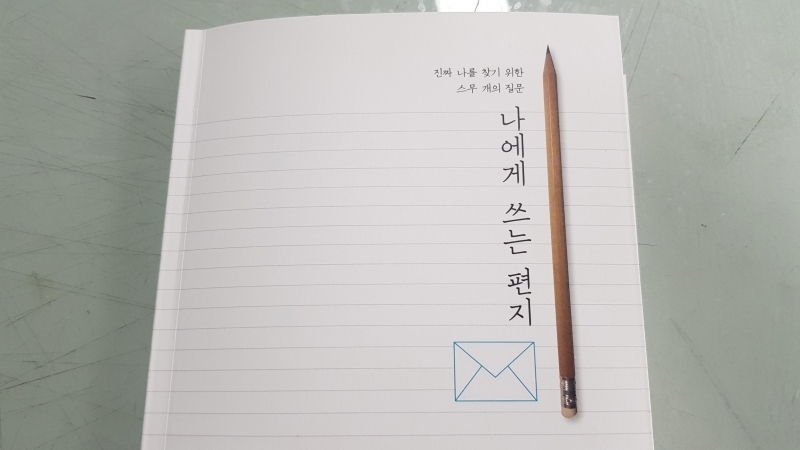 진짜 나를 찾기 위한
스무 개의 질문
나에게 쓰는 편지